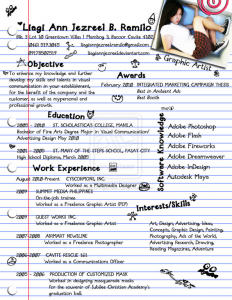 Liegl Ann Jezreel B. Ramilo
Graphic Artist
Objective
To enhance my knowledge and further
develop my skills and talents in visual
communication in your establishment,
for the benefit of the company and the
customer, as well as my personal and
professional growth.
Awards
February 2010 INTEGRATED MARKETING CAMPAIGN THESIS
Best in Ambient Ads
Best Booth
Education
2005 - 2010 ST. SCHOLASTICA'S COLLEGE, MANILA
Bachelor of Fine Arts Degree Major in Visual Communication/
Advertising Design May 2010
2001 - 2005 ST. MARY OF THE STEMS SCHOOL, PASAY CITY
High School Diploma, March 2005
Software Knowledge
Adobe Photoshop
Adobe Flash
Adobe Fireworks
Adobe Dreamweaver
Adobe InDesign
Autodesk Maya
Work Experience
August 2010-Present
Worked as a Multimedia Designer
2009 SUMMIT MEDIA PHILIPPINES
On-the-job trainee
Worked as a Freelance Graphic Artist
2009 GUEST WORKS INC.
Worked as a Freelance Graphic Artist
2007-2008
Worked as a Freelance Photographer
2006-2007 CAVITE RESCUE 161
Worked as a Communications Officer
2005 - 2006 PRODUCTION OF CUSTOMIZED MASK
Worked in designing masquerade masks
for the souvenir of Jubilee Christian Academy's
graduation ball.
Interests/Skills
Art, Design, Advertising, Ideas,
Concepts, Graphic Design, Painting,
Photography, Ads of the World,
Advertising Research, Drawing,
Reading Magazines, Adventure